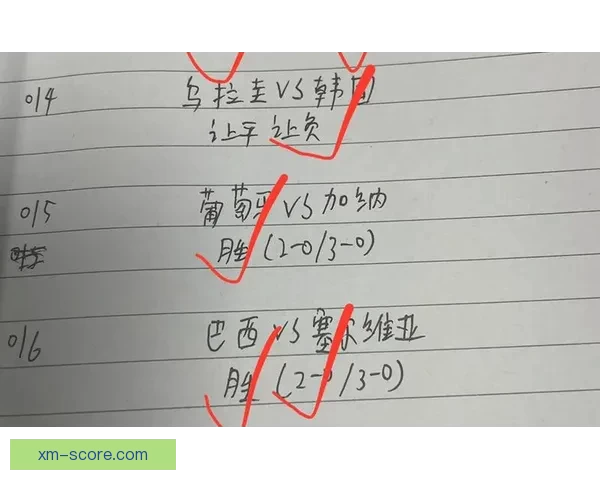 014 乌拉圭VS韩国
让平 让负
015 葡萄牙VS加纳
胜(2-0/3-0)
016 巴西VS塞尔维亚
胜(2-0/3-0)
xm-score.com